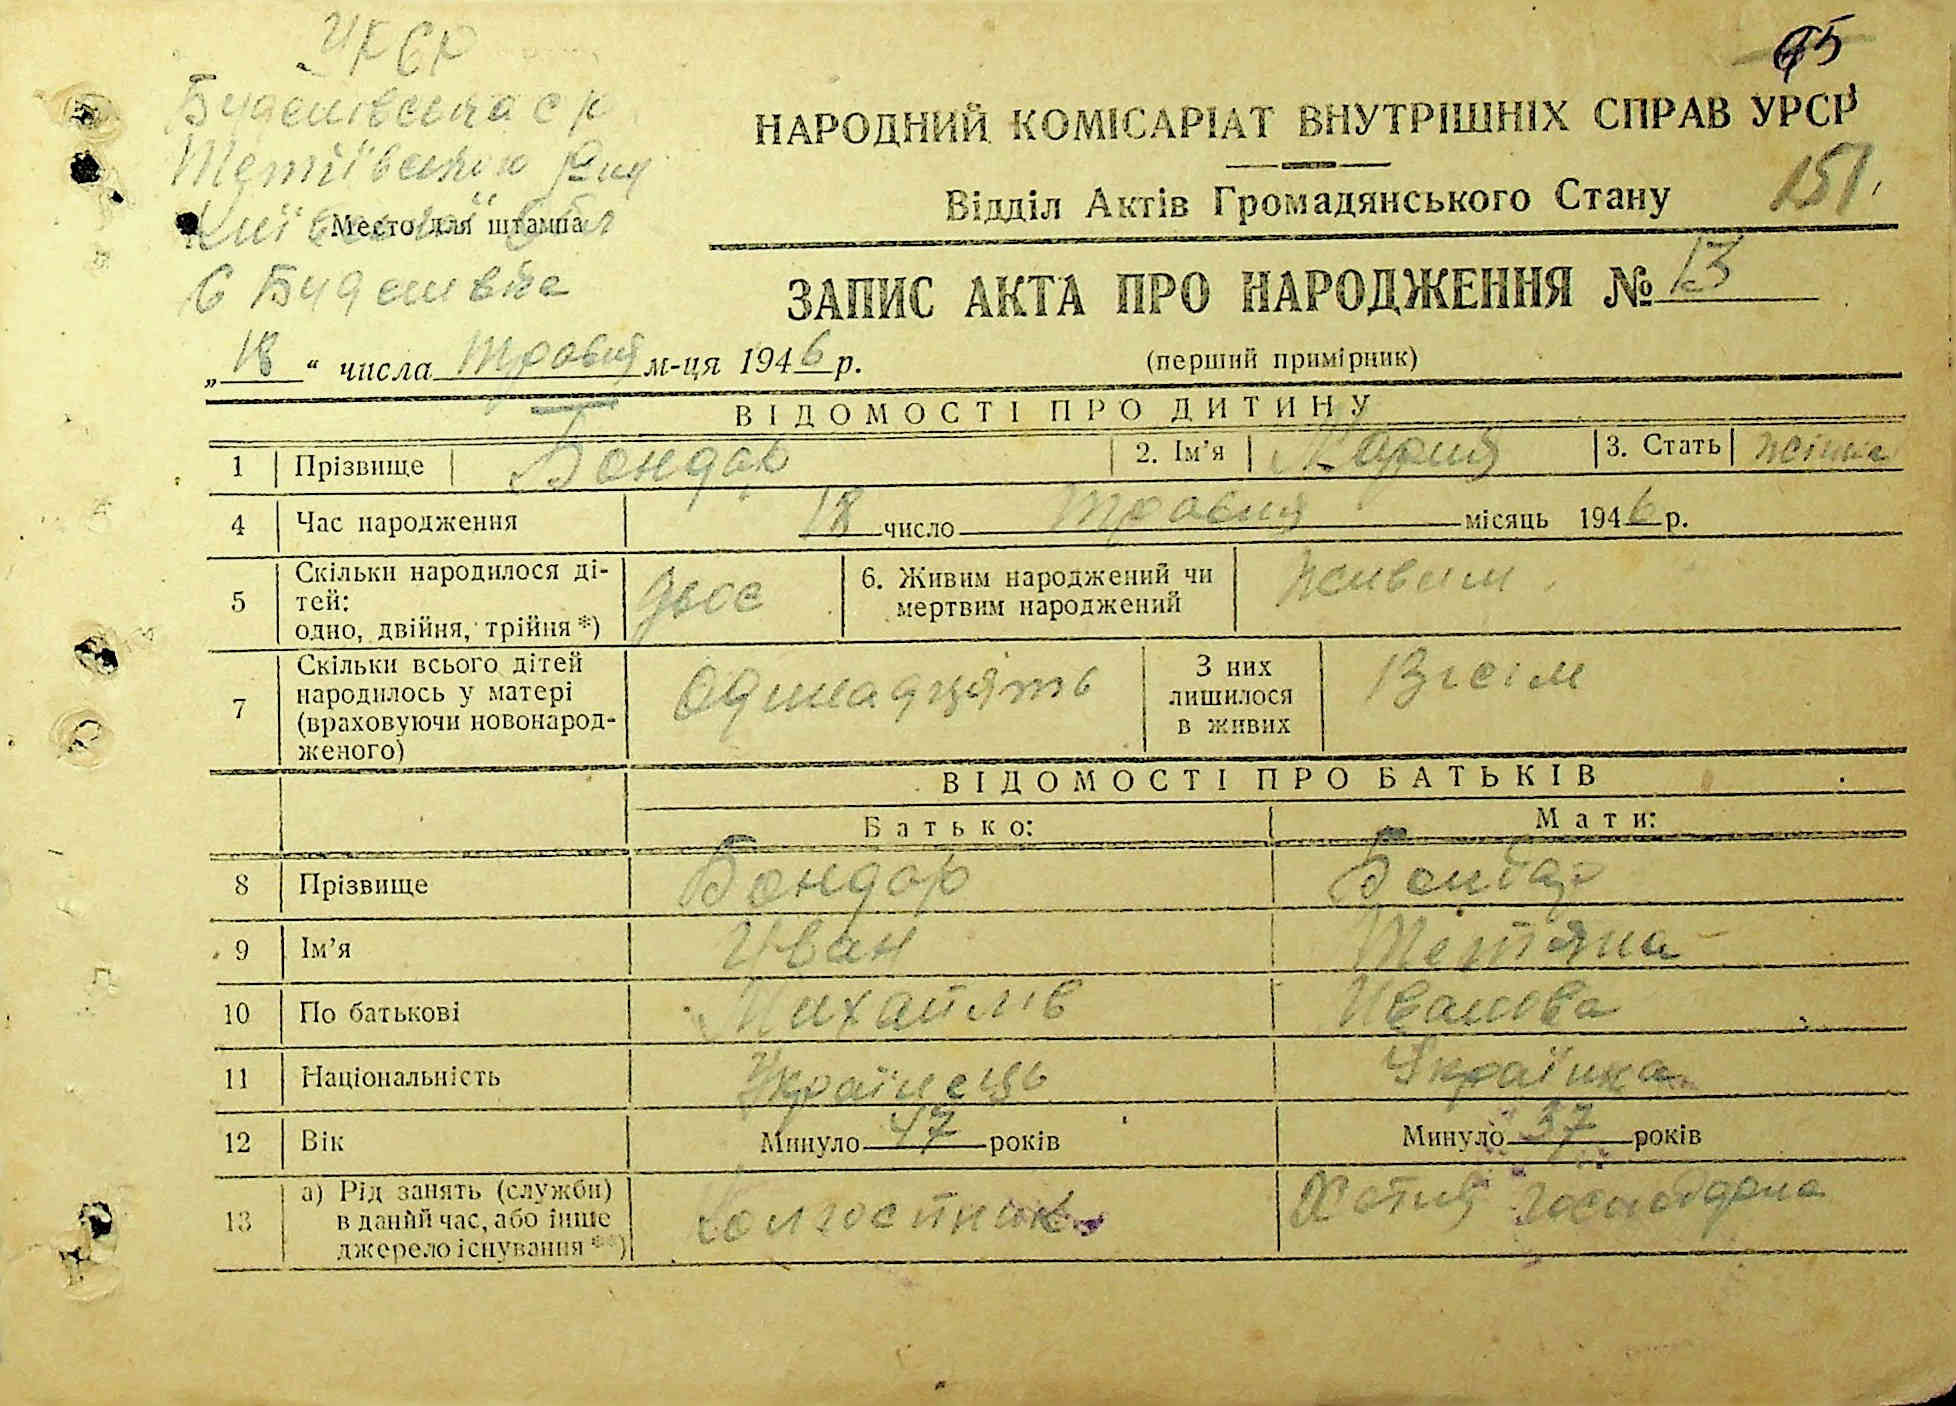 УРСР
65
Буденівська с р
НАРОДНИЙ КОМІСАРІАТ ВНУТРІШНІХ СПРАВ УРСР
Тетіївського р-ну
Відділ Актів Громадянського Стану
151
Київської обл
Место для штампа
с Буденівка
ЗАПИС АКТА ПРО НАРОДЖЕННЯ № 13
„18“ числа травня м-ця 1946 р.
(перший примірник)
ВІДОМОСТІ ПРО ДИТИНУ
1 Прізвище Бондар 2. Ім'я Мария 3. Стать жінка
4 Час народження 18 число травня місяць 1946 р.
5 Скільки народилося ді-
тей:
одно, двійня, трійня *) двоє
6. Живим народжений чи
мертвим народжений живим
7 Скільки всього дітей
народилось у матері
(враховуючи новонарод-
женого) одинадцять
З них
лишилося
в живих
Вісім
ВІДОМОСТІ ПРО БАТЬКІВ
Батько: Мати:
8 Прізвище Бондар Бондар
9 Ім'я Иван Тетяна
10 По батькові Михайлів Иванова
11 Національність Українець Українка
12 Вік Минуло 47 років Минуло 37 років
13 а) Рід занять (служби)
в даний час, або інше
джерело існування **)
Колгоспник Хатня господарка